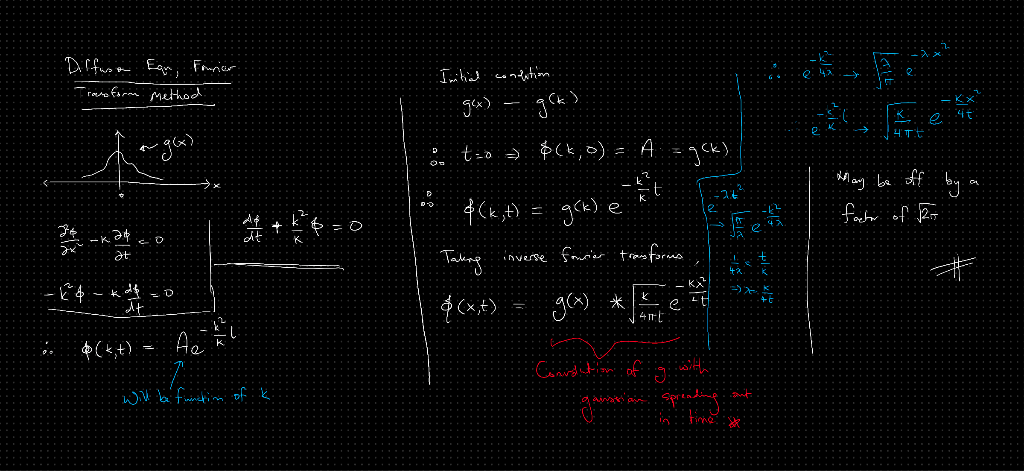 Diffusion Eqn, Fourier
Transform Method
g(x)
x
∂²φ/∂x² - κ ∂φ/∂t = 0
-k²φ - κ dφ/dt = 0
∴ φ(k,t) = A e^(-k²/κ t)
Will be function of k
dφ/dt + k²/κ φ = 0
Initial condition
g(x) — g(k)
∴ t=0 ⇒ φ(k,0) = A = g(k)
∴ φ(k,t) = g(k) e^(-k²/κ t)
Taking inverse fourier transforms,
φ(x,t) = g(x) * √(κ/4πt) e^(-κx²/4t)
Convolution of g with
gaussian spreading out
in time *
e^(-λt²)
→ √(π/λ) e^(-k²/4λ)
1/4λ = t/κ
⇒ λ = κ/4t
∴ e^(-k²/4λ) → √(λ/π) e^(-λx²)
e^(-k²/κ t) → √(κ/4πt) e^(-κx²/4t)
May be off by a
factor of √2π